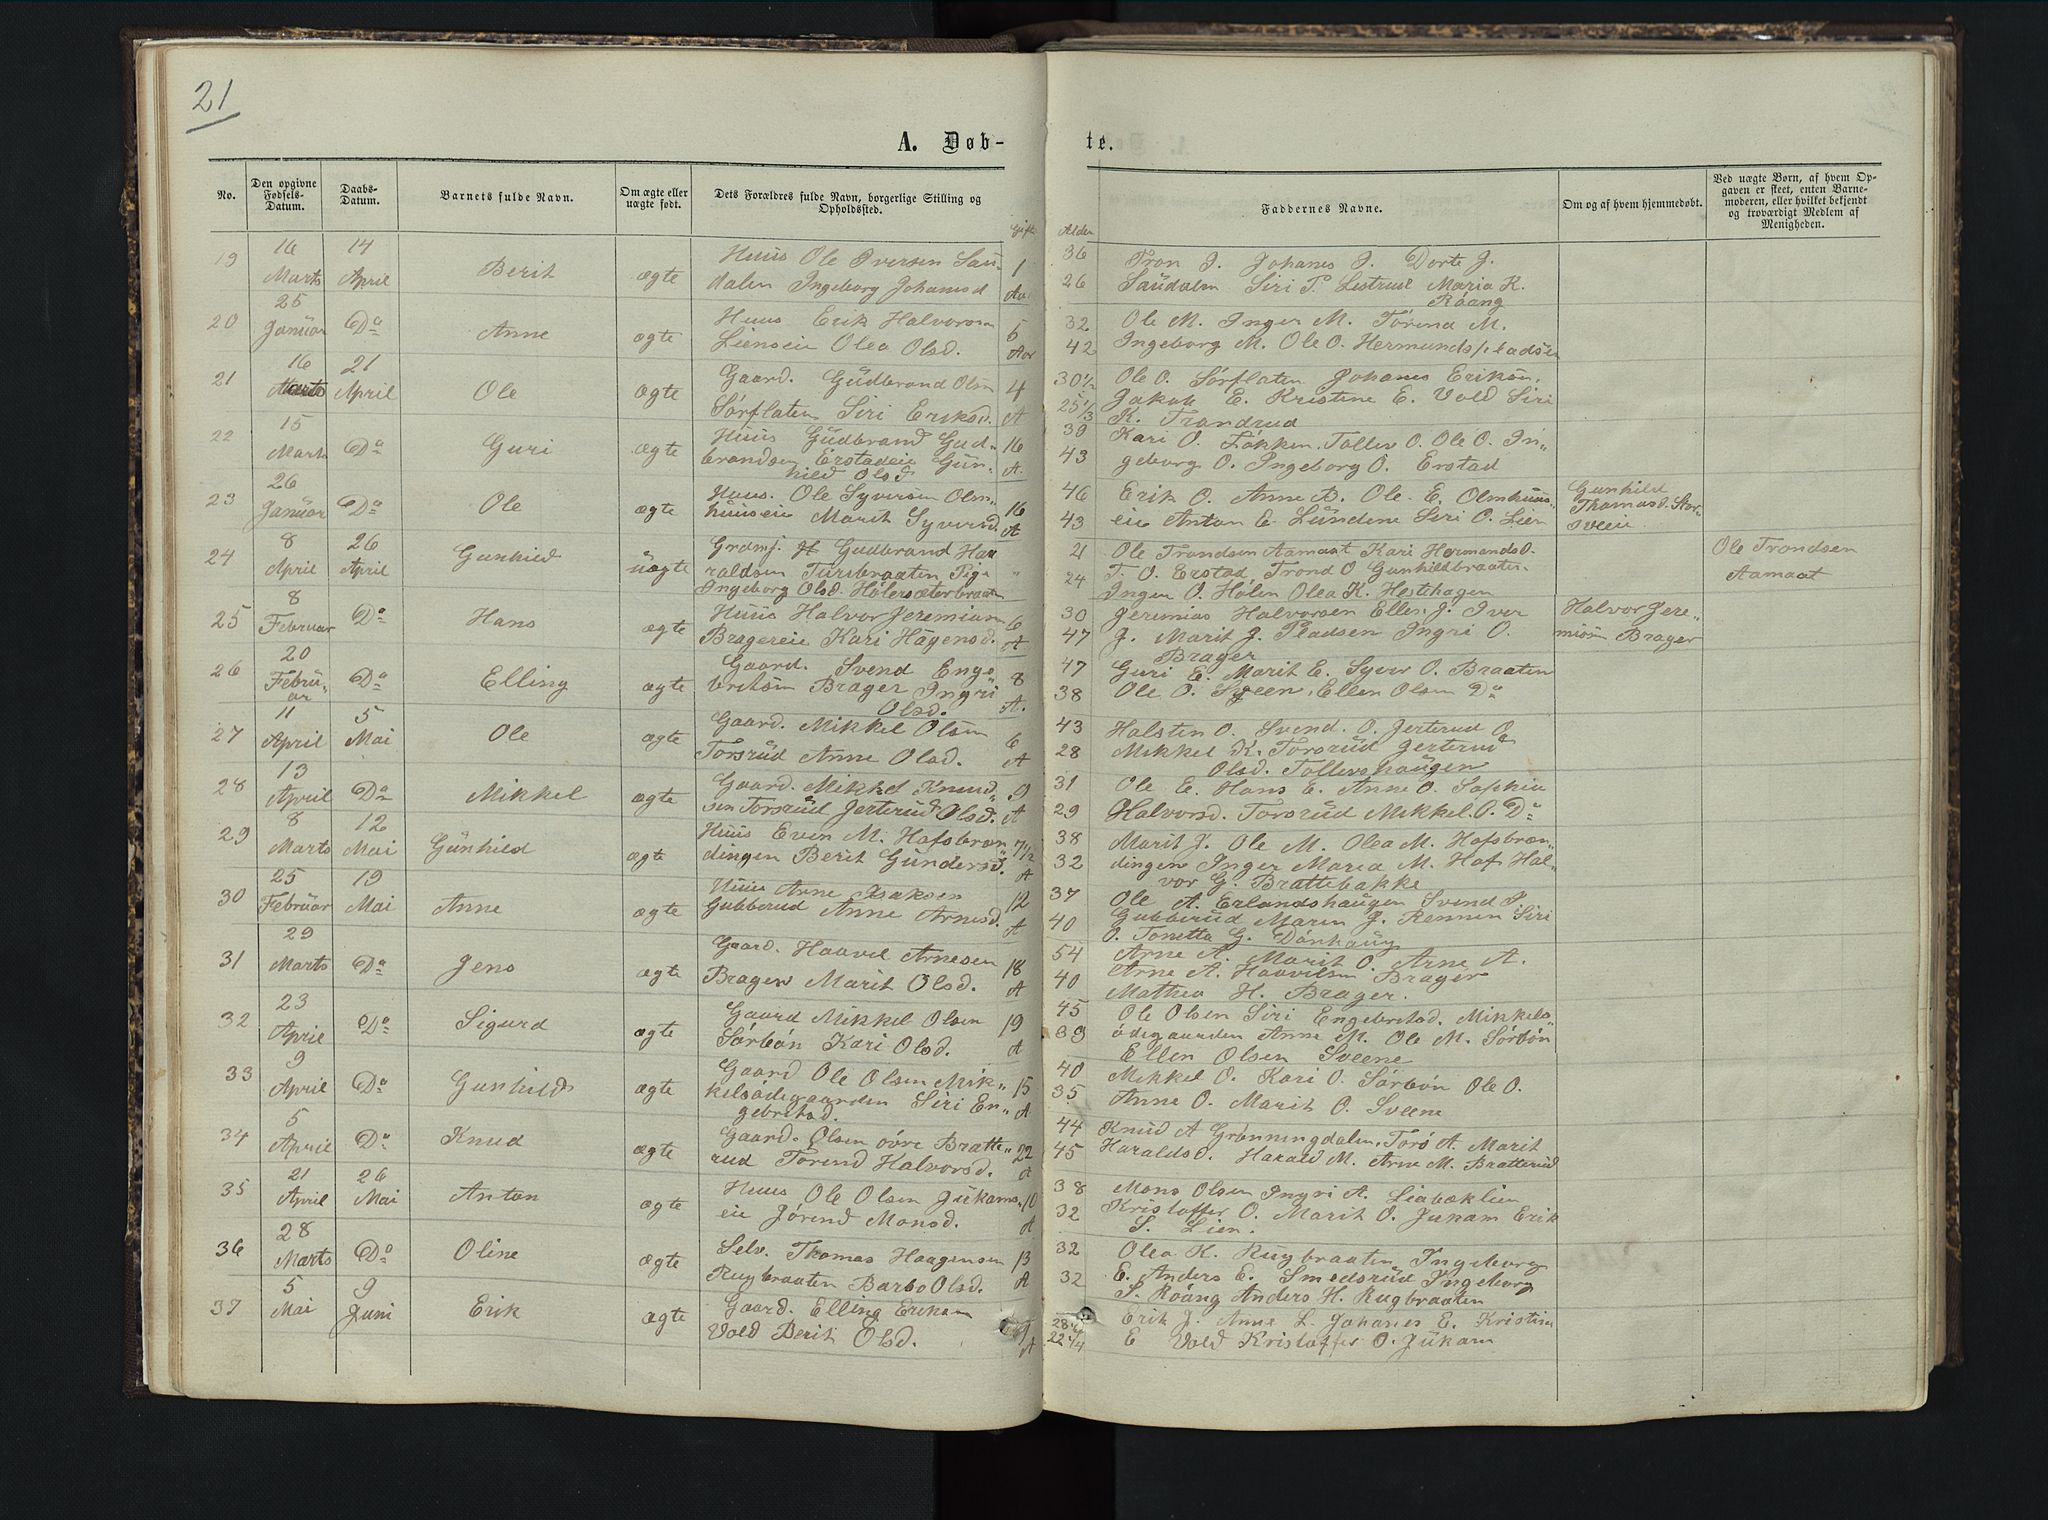 21
A. Døb-
No.
Den opgivne Fødsels-Datum.
Daabs-Datum.
Barnets fulde Navn.
Om ægte eller uægte født.
Dets Forældres fulde Navn, borgerlige Stilling og Opholdssted.
19 16 Marts 14 April Berit ægte Huus Ole Iversen Sau- 1
dalen Ingeborg Johannesd
20 25 Januar Do Anne ægte Huus Erik Halvorsen 5
Lienseie Olea Olsd. Aar
21 16 Marts 21 April Ole ægte Gaard. Gudbrand Olsn 4
Sørflaten Siri Eriksd. A
22 15 Marts Do Guri ægte Huus Gudbrand Gud- 16
brandsen Erstadeie Gun- A.
hild Olsd
23 26 Januar Do Ole ægte Huus. Ole Syversen Olm- 16
huuseie Marit Syversd. A
24 8 April 26 April Gunhild uægte Grdmf. Gudbrand Ha
raldsen Tursbraaten Pige "
Ingeborg Olsd. Hølersæterbraaten
25 8 Februar Do Hans ægte Huus Halvor Jeremiasn 6
Bragereie Kari Hagensd. A
26 20 Febru-ar Do Elling ægte Gaard. Svend Enge 8
bretsen Brager Ingri
Olsd. A.
27 11 April 5 Mai Ole ægte Gaard. Mikkel Olsen 6
Torsrud Anne Olsd. A
28 13 April Do Mikkel ægte Gaard. Mikkel Knud- 9
sen Torsrud Jerterud Olsd. A
29 8 Marts 12 Mai Gunhild ægte Huus Even M. Hafsbræn 7½
dingen Berit Gundersd. A
30 25 Februar 19 Mai Anne ægte Huus Arne Isaksen 12
Gubberud Anne Arnesd. A
31 29 Marts Do Jens ægte Gaard. Haavel Arnesen 18
Brager Marit Olsd. A
32 23 April Do Sigurd ægte Gaard Mikkel Olsen 19
Sørbøn Kari Olsd. A
33 9 April Do Gunhild ægte Gaard Ole Olsen Mik- 15
kelsødegaarden Siri En- A
gebretsd.
34 5 April Do Knud ægte Gaard. Olsen øvre Bratte- 22
rud Torend Halvorsd. A
35 21 April 26 Mai Anton ægte Huus Ole Olsen Jukams- 10
eie Jørend Monsd. A
36 28 Marts Do Oline ægte Selv. Thomas Haagensen 13
Rugbraaten Barbo Olsd. A
37 5 Mai 9 Juni Erik ægte Gaard. Elling Eriksen
Vold Berit Olsd. A
te.
Alder
Faddernes Navne.
Om og af hvem hjemmedøbt.
Ved uægte Børn, af hvem Op-
gaven er skeet, enten Barne-
moderen, eller hvilket bekjendt
og troværdigt Medlem af
Menigheden.
36 Tron J. Johanes J. Dorte J.
26 Saudalen Siri P. Lestrud Maria K.
Røang
32 Ole M. Inger M. Torend M.
42 Ingeborg M. Ole O. Hermundspladsen
30½ Ole O. Sørflaten Johanes Eriksen.
25⅓ Jakob E. Kristine E. Vold Siri
K. Trandrud
39 Kari O. Løkken. Tollev O. Ole O. In-
43 geborg O. Ingeborg O. Erstad
46 Erik O. Anne B. Ole E. Olmhuus- Gunhild
43 eie Anton E. Lundene Siri O. Lien Thomasd. Stor-
sveen
21 Ole Trondsen Aamaat Kari Hermands O. Ole Trondsen
24 T. O. Erstad Trond O Gunhildbraaten. Aamaat
Inger O. Hølen Olea K. Hestehagen
30 Jeremias Halvorsen Ellen J. Iver Halvor Jere-
47 J. Marit J. Pladsen Ingri O. miasen Brager
Brager
47 Guri E. Marit E. Syver O. Braaten
38 Ole O. Sveen. Ellen Olsen Do
43 Halsten O. Svend. O. Jerterud O
28 Mikkel K. Torsrud Jerterud
Olsd. Tollevshaugen
31 Ole E. Hans E. Anne O. Sophia
29 Halvorsd. Torsrud Mikkel O. Do
38 Marit J. Ole M. Olea M. Hafsbræn-
32 dingen Inger Maria M. Hof Hal-
vor G. Brattebakke
37 Ole A. Erlandshaugen Svend P
40 Gubberud Maren J. Rennen Siri
O. Tonetta G. Dønhaug
54 Arne A. Marit O. Arne A.
40 Arne A. Haavelsen Brager
Mathea H. Brager.
45 Ole Olsen Siri Engebretsd. Mikkels-
39 ødegaarden Anne M. Ole M. Sørbøn
Ellen Olsen Sveene
40 Mikkel O. Kari O. Sørbøn Ole O.
35 Anne O. Marit O. Sveene
44 Knud A Grønningdalen. Toro A. Marit
45 Haraldsd. Harald M. Arne M. Bratterud
38 Mons Olsen Ingri A. Liabæklien
32 Kristoffer O. Marit O. Jukam Erik
S. Lien.
32 Olea K. Rugbraaten Ingeborg
32 E. Anders E. Smedsrud Ingeborg
S. Røang Anders H. Rugbraaten
28 Erik J. Anne L. Johanes E. Kristine
22 E Vold Kristoffer O. Jukam